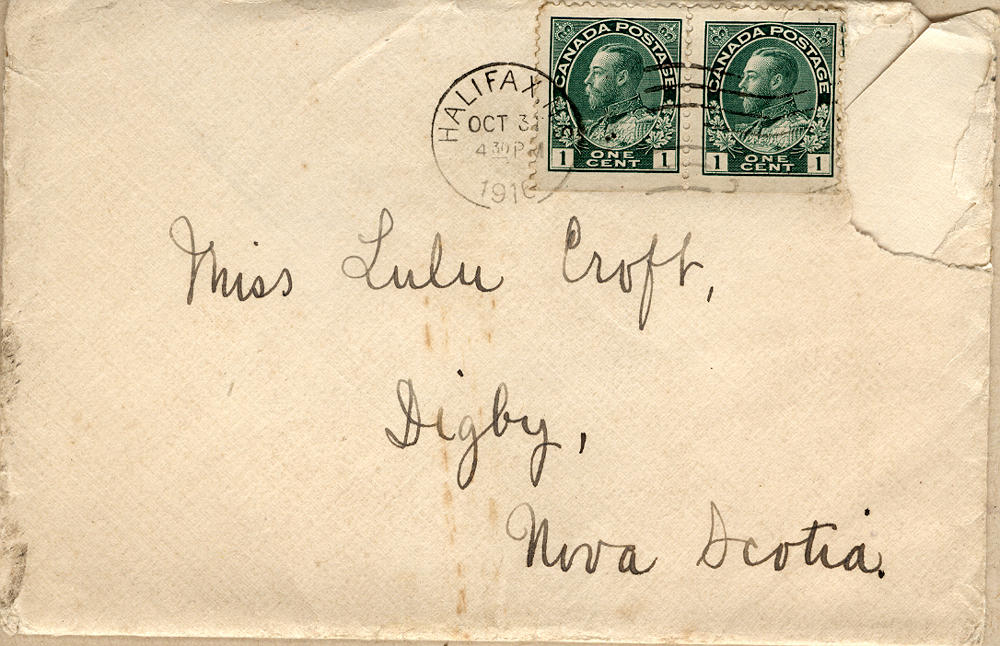 CANADA POSTAGE CANADA POSTAGE
HALIFAX, N
OCT 31
4 30 PM
1916
1 ONE CENT 1 1 ONE CENT 1
Miss Lulu Croft,
Digby,
Nova Scotia.